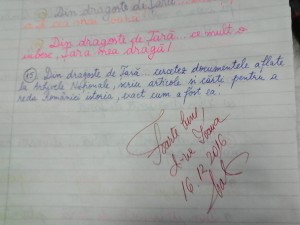 Din dragoste de Țară
Din dragoste de Țară... ce mult o
iubesc, Țara mea dragă!
15 Din dragoste de Țară... cercetez documentele aflate
la Arhivele Naționale, scriu articole și cărți pentru a
reda României istoria, exact cum a fost ea.
Foarte bine,
16.12.2016